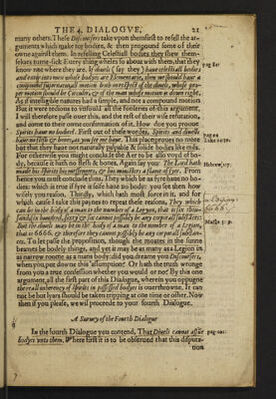 THE 4. DIALOGVE. 21
many others. These Discoursers take vpon themselfst to refell the ar-
guments which make for bodies, & then propound some of their
owne against them. In refelling Celestiall bodies they shew them-
selues turne-sick Euery thing wheles so about with them, that they
know not where they are. If (say they) haue celestiall bodies
and enter into mens whole bodies are
compound supernaturall motion both of the diuels, whose pro-
per motion should be Circular, & of the man whose motion is down right.
As if intelligible natures had a simple, and not a compound motion
But it were tedious to vnfould all the fooleries of this argument.
I will therefore passe ouer this, and the rest of their wise refutation,
and come to their owne confirmation of it. How doe you prooue
Spirits haue no bodyes? First out of these wordes, Spirits and diuels
haue no flesh & bones, as you see me haue. This prooues no more
but that they haue not naturally palpable & solide bodies like ours.
For otherwise you might conclude the Aer to be also void of bo-
die, because it hath no flesh & bones. Againe say you The Lord hath
made his Spirits his messengers, & his ministers a flame of fyer. From
hence you must conclude thus. They which be as fyre haue no bo-
dies: which is true if fyre it selfe haue no body: you see then how
wisely you reason. Thirdly, which hath most force in it, and for
which cause I take this paynes to repeat these reasons, They which
can be in the body of a man to the number of a Legion, that is six thou-
sand six hundred sixty six cannot possibly be any corporall substances.
But the diuels may be in the body of a man to the number of a Legion,
that is 6666, & therefore they cannot possibly be any corporall substan-
ces. To let passe the proposition, though the moates in the sunne
beames be bodely things, and yet it may be as many as a Legion in
as narrow roome as a mans body: did you dreame you Discoursers,
when you put downe this assumption? Or hath the truth wrunge
from you a true confession whether you would or no? By this one
argument all the first part of this Dialogue, wherein you oppugne
the reall inherency of Spirits in possessed bodies is ouerthrowne. It can
not be but lyars should be taken tripping at one time or other. Now
then if you please, we will proceede to your fourth Dialogue.
A Suruey of the Fourth Dialogue
In the fourth Dialogue you contend, That Diuels cannot assume
bodyes vnto them. Where first it is to be obserued that this disputa-
tion